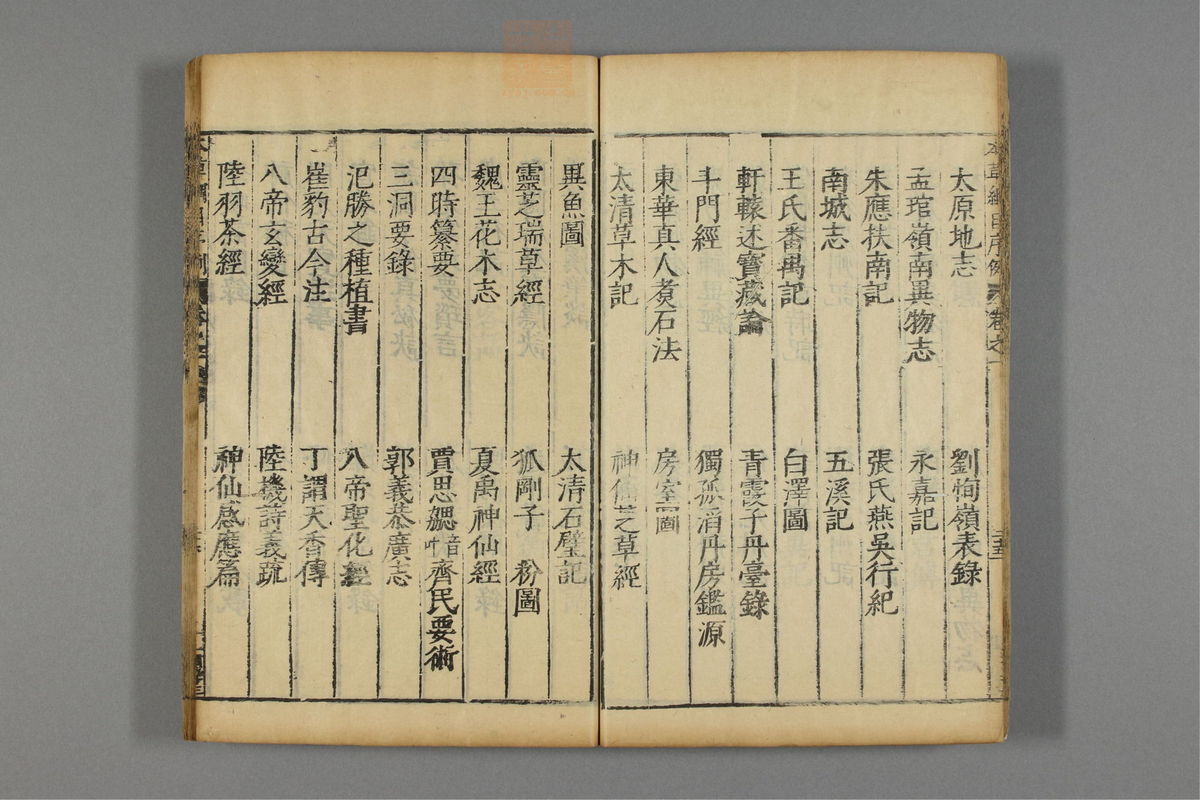 太原地志　劉恂嶺表錄
孟琯嶺南異物志　永嘉記
朱應扶南記　張氏燕吳行紀
南城志　五溪記
王氏番禺記　白澤圖
軒轅述寶藏論　青霞子丹臺錄
斗門經　獨孤滔丹房鑑源
東華真人煮石法　房室圖
太清草木記　神仙芝草經
異魚圖　太清石璧記
靈芝瑞草經　狐剛子粉圖
魏王花木志　夏禹神仙經
四時纂要　賈思勰音諧齊民要術
三洞要錄　郭義恭廣志
氾勝之種植書　八帝聖化經
崔豹古今注　丁謂天香傳
八帝玄變經　陸機詩義疏
陸羽茶經　神仙感應篇